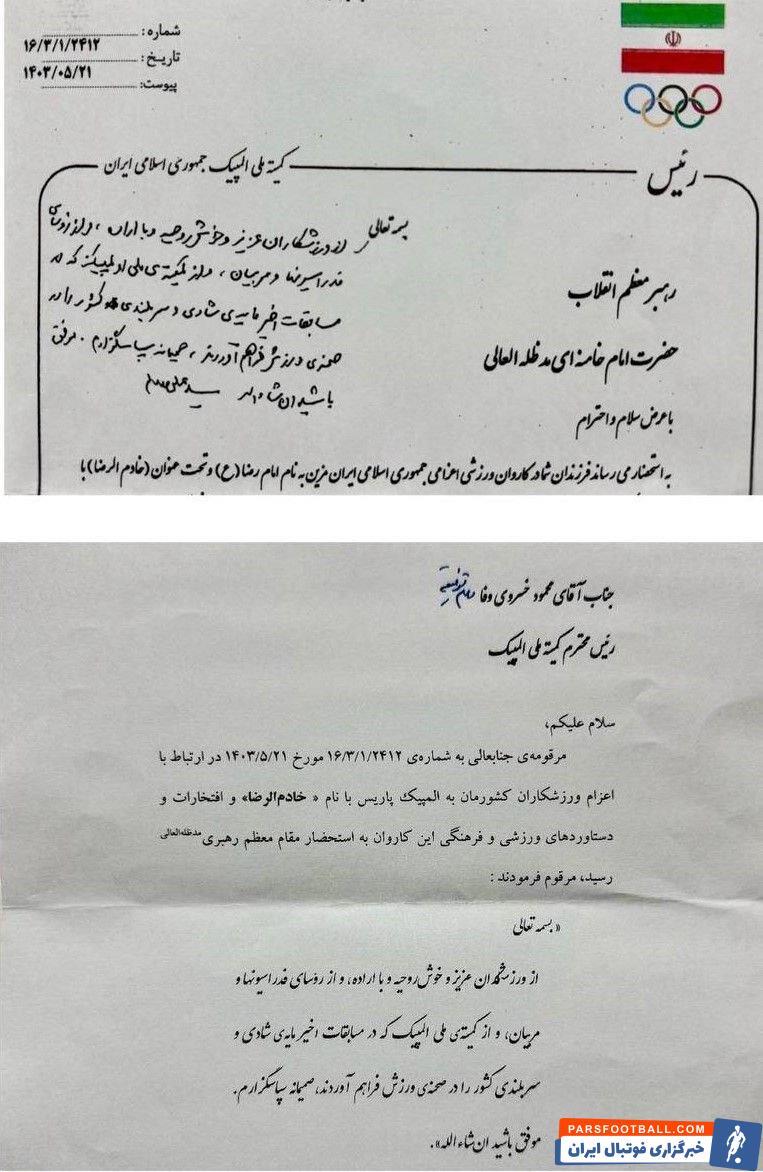 شماره:
۱۶/۳/۱/۲۴۱۲
تاریخ:
۱۴۰۳/۰۵/۲۱
پیوست:
رئیس
کمیته ملی المپیک جمهوری اسلامی ایران
بسمه تعالی
از ورزشکاران عزیز و خوش روحیه و با اراده، و از رؤسای
فدراسیونها و مربیان، و از کمیته‌ی ملی المپیک که در
مسابقات اخیر مایه‌ی شادی و سربلندی کشور را در
صحنه‌ی ورزش فراهم آوردند، صمیمانه سپاسگزارم. موفق
باشید ان شاء الله
رهبر معظم انقلاب
حضرت امام خامنه ای مدظله العالی
با عرض سلام و احترام
به استحضار می رساند فرزندان شما در کاروان ورزشی اعزامی جمهوری اسلامی ایران مزین به نام امام رضا (ع) و تحت عنوان (خادم الرضا) با
جناب آقای محمود خسروی وفا دام توفیقه
رئیس محترم کمیته ملی المپیک
سلام علیکم،
مرقومه‌ی جنابعالی به شماره‌ی ۱۶/۳/۱/۲۴۱۲ مورخ ۱۴۰۳/۵/۲۱ در ارتباط با
اعزام ورزشکاران کشورمان به المپیک پاریس با نام « خادم‌الرضا» و افتخارات و
دستاوردهای ورزشی و فرهنگی این کاروان به استحضار مقام معظم رهبری مدظله‌العالی
رسید، مرقوم فرمودند :
« بسمه تعالی
از ورزشکاران عزیز و خوش‌روحیه و با اراده، و از رؤسای فدراسیونها و
مربیان، و از کمیته‌ی ملی المپیک که در مسابقات اخیر مایه‌ی شادی و
سربلندی کشور را در صحنه‌ی ورزش فراهم آوردند، صمیمانه سپاسگزارم.
موفق باشید ان شاء الله».
PARSFOOTBALL.COM
خبرگزاری فوتبال ایران